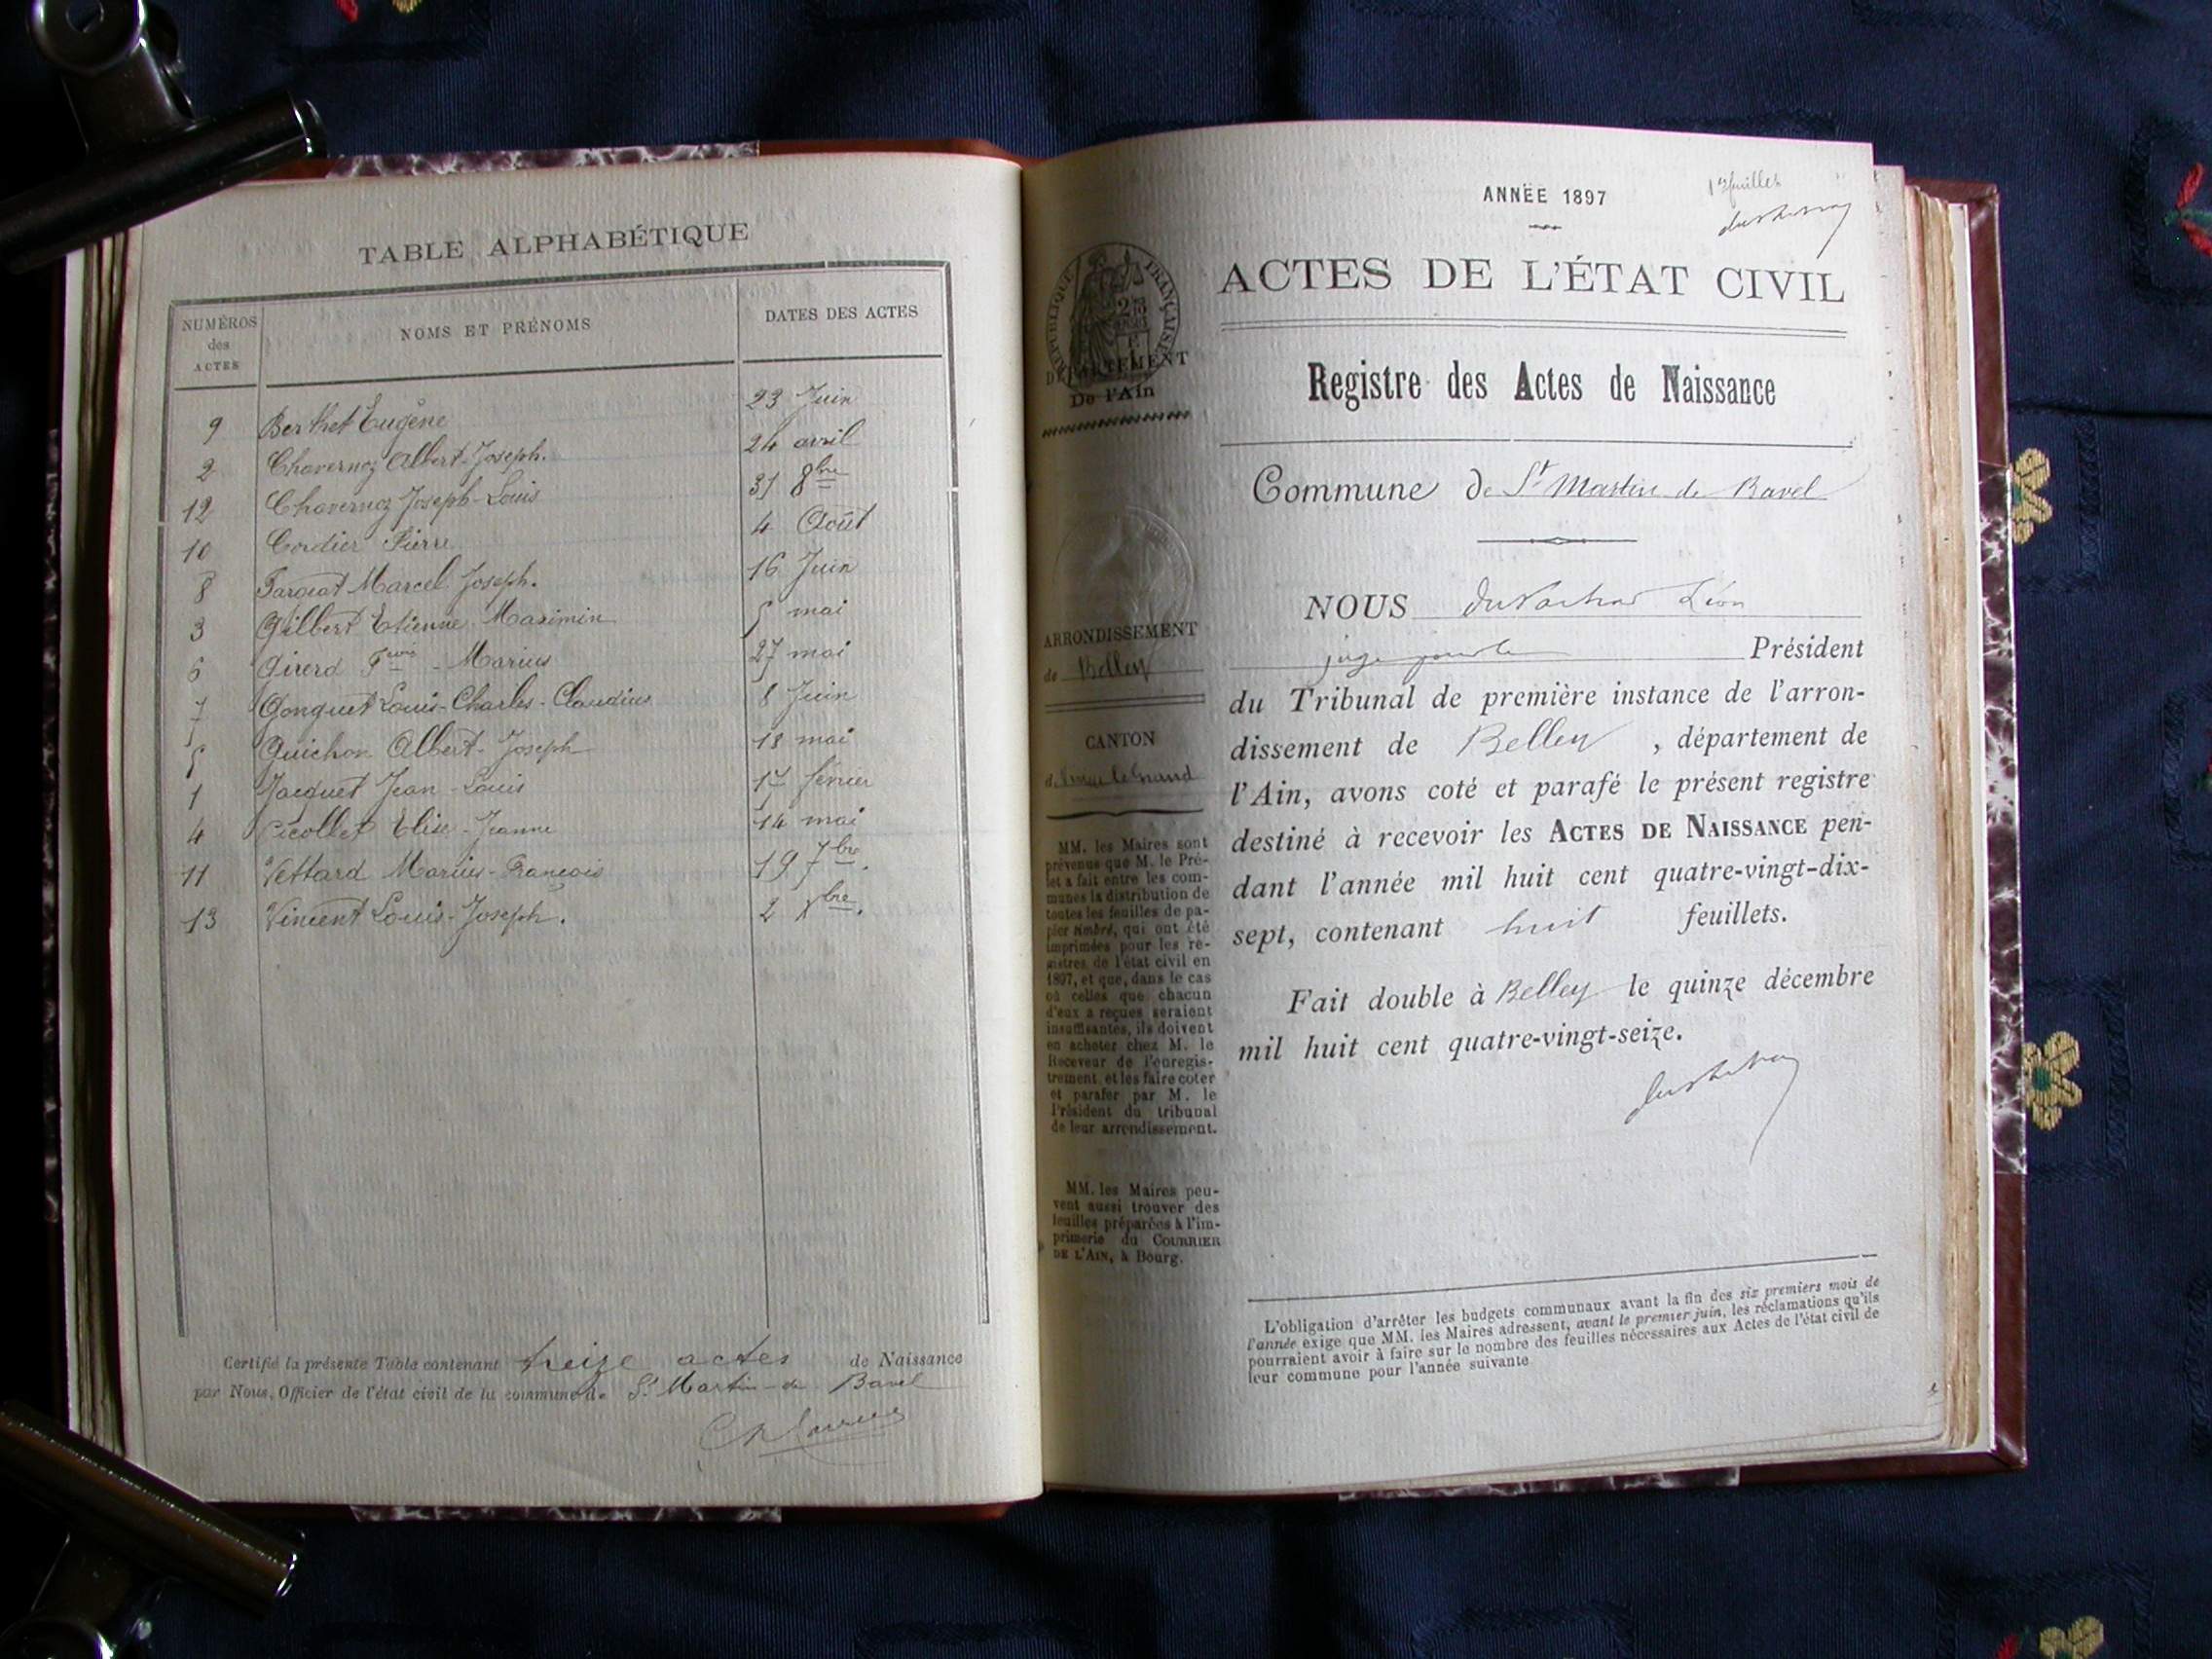 TABLE ALPHABÉTIQUE
NUMÉROS des ACTES
NOMS ET PRÉNOMS
DATES DES ACTES
9 Berthet Eugène 23 Juin
2 Chavernoz Albert-Joseph. 24 avril
12 Chavernoz Joseph-Louis 31 8bre
10 Cordier Pierre 4 Août
8 Marcel Joseph. 16 Juin
3 Gilbert Etienne-Maximin 5 mai
6 Girerd - Marius 27 mai
7 Gonguet Louis-Charles-Claudius 8 Juin
5 Guichon Albert-Joseph 18 mai
1 Jacquet Jean-Louis 17 février
4 Picollet Elise-Jeanne 14 mai
11 Vettard Marius-François 19 7bre.
13 Vincent Louis-Joseph. 2 Xbre.
Certifié la présente Table contenant treize actes de Naissance
par Nous, Officier de l'état civil de la commune de St Martin-de Bavel
ANNÉE 1897
1er feuillet
ACTES DE L'ÉTAT CIVIL
Registre des Actes de Naissance
Commune de St Martin de Bavel
NOUS Léon
juge Président
du Tribunal de première instance de l'arron-
dissement de Belley, département de
l'Ain, avons coté et parafé le présent registre
destiné à recevoir les ACTES DE NAISSANCE pen-
dant l'année mil huit cent quatre-vingt-dix-
sept, contenant huit feuillets.
Fait double à Belley le quinze décembre
mil huit cent quatre-vingt-seize.
RÉPUBLIQUE FRANÇAISE
DÉPARTEMENT
De l'Ain
ARRONDISSEMENT
de Belley
CANTON
MM. les Maires sont
prévenus que M. le Pré-
fet a fait entre les com-
munes la distribution de
toutes les feuilles de pa-
pier timbré, qui ont été
imprimées pour les re-
gistres de l'état civil en
1897, et que, dans le cas
où celles que chacun
d'eux a reçues seraient
insuffisantes, ils doivent
en acheter chez M. le
Receveur de l'enregis-
trement, et les faire coter
et parafer par M. le
Président du tribunal
de leur arrondissement.
MM. les Maires peu-
vent aussi trouver des
feuilles préparées à l'im-
primerie du COURRIER
DE L'AIN, à Bourg.
L'obligation d'arrêter les budgets communaux avant la fin des six premiers mois de
l'année exige que MM. les Maires adressent, avant le premier juin, les réclamations qu'ils
pourraient avoir à faire sur le nombre des feuilles nécessaires aux Actes de l'état civil de
leur commune pour l'année suivante